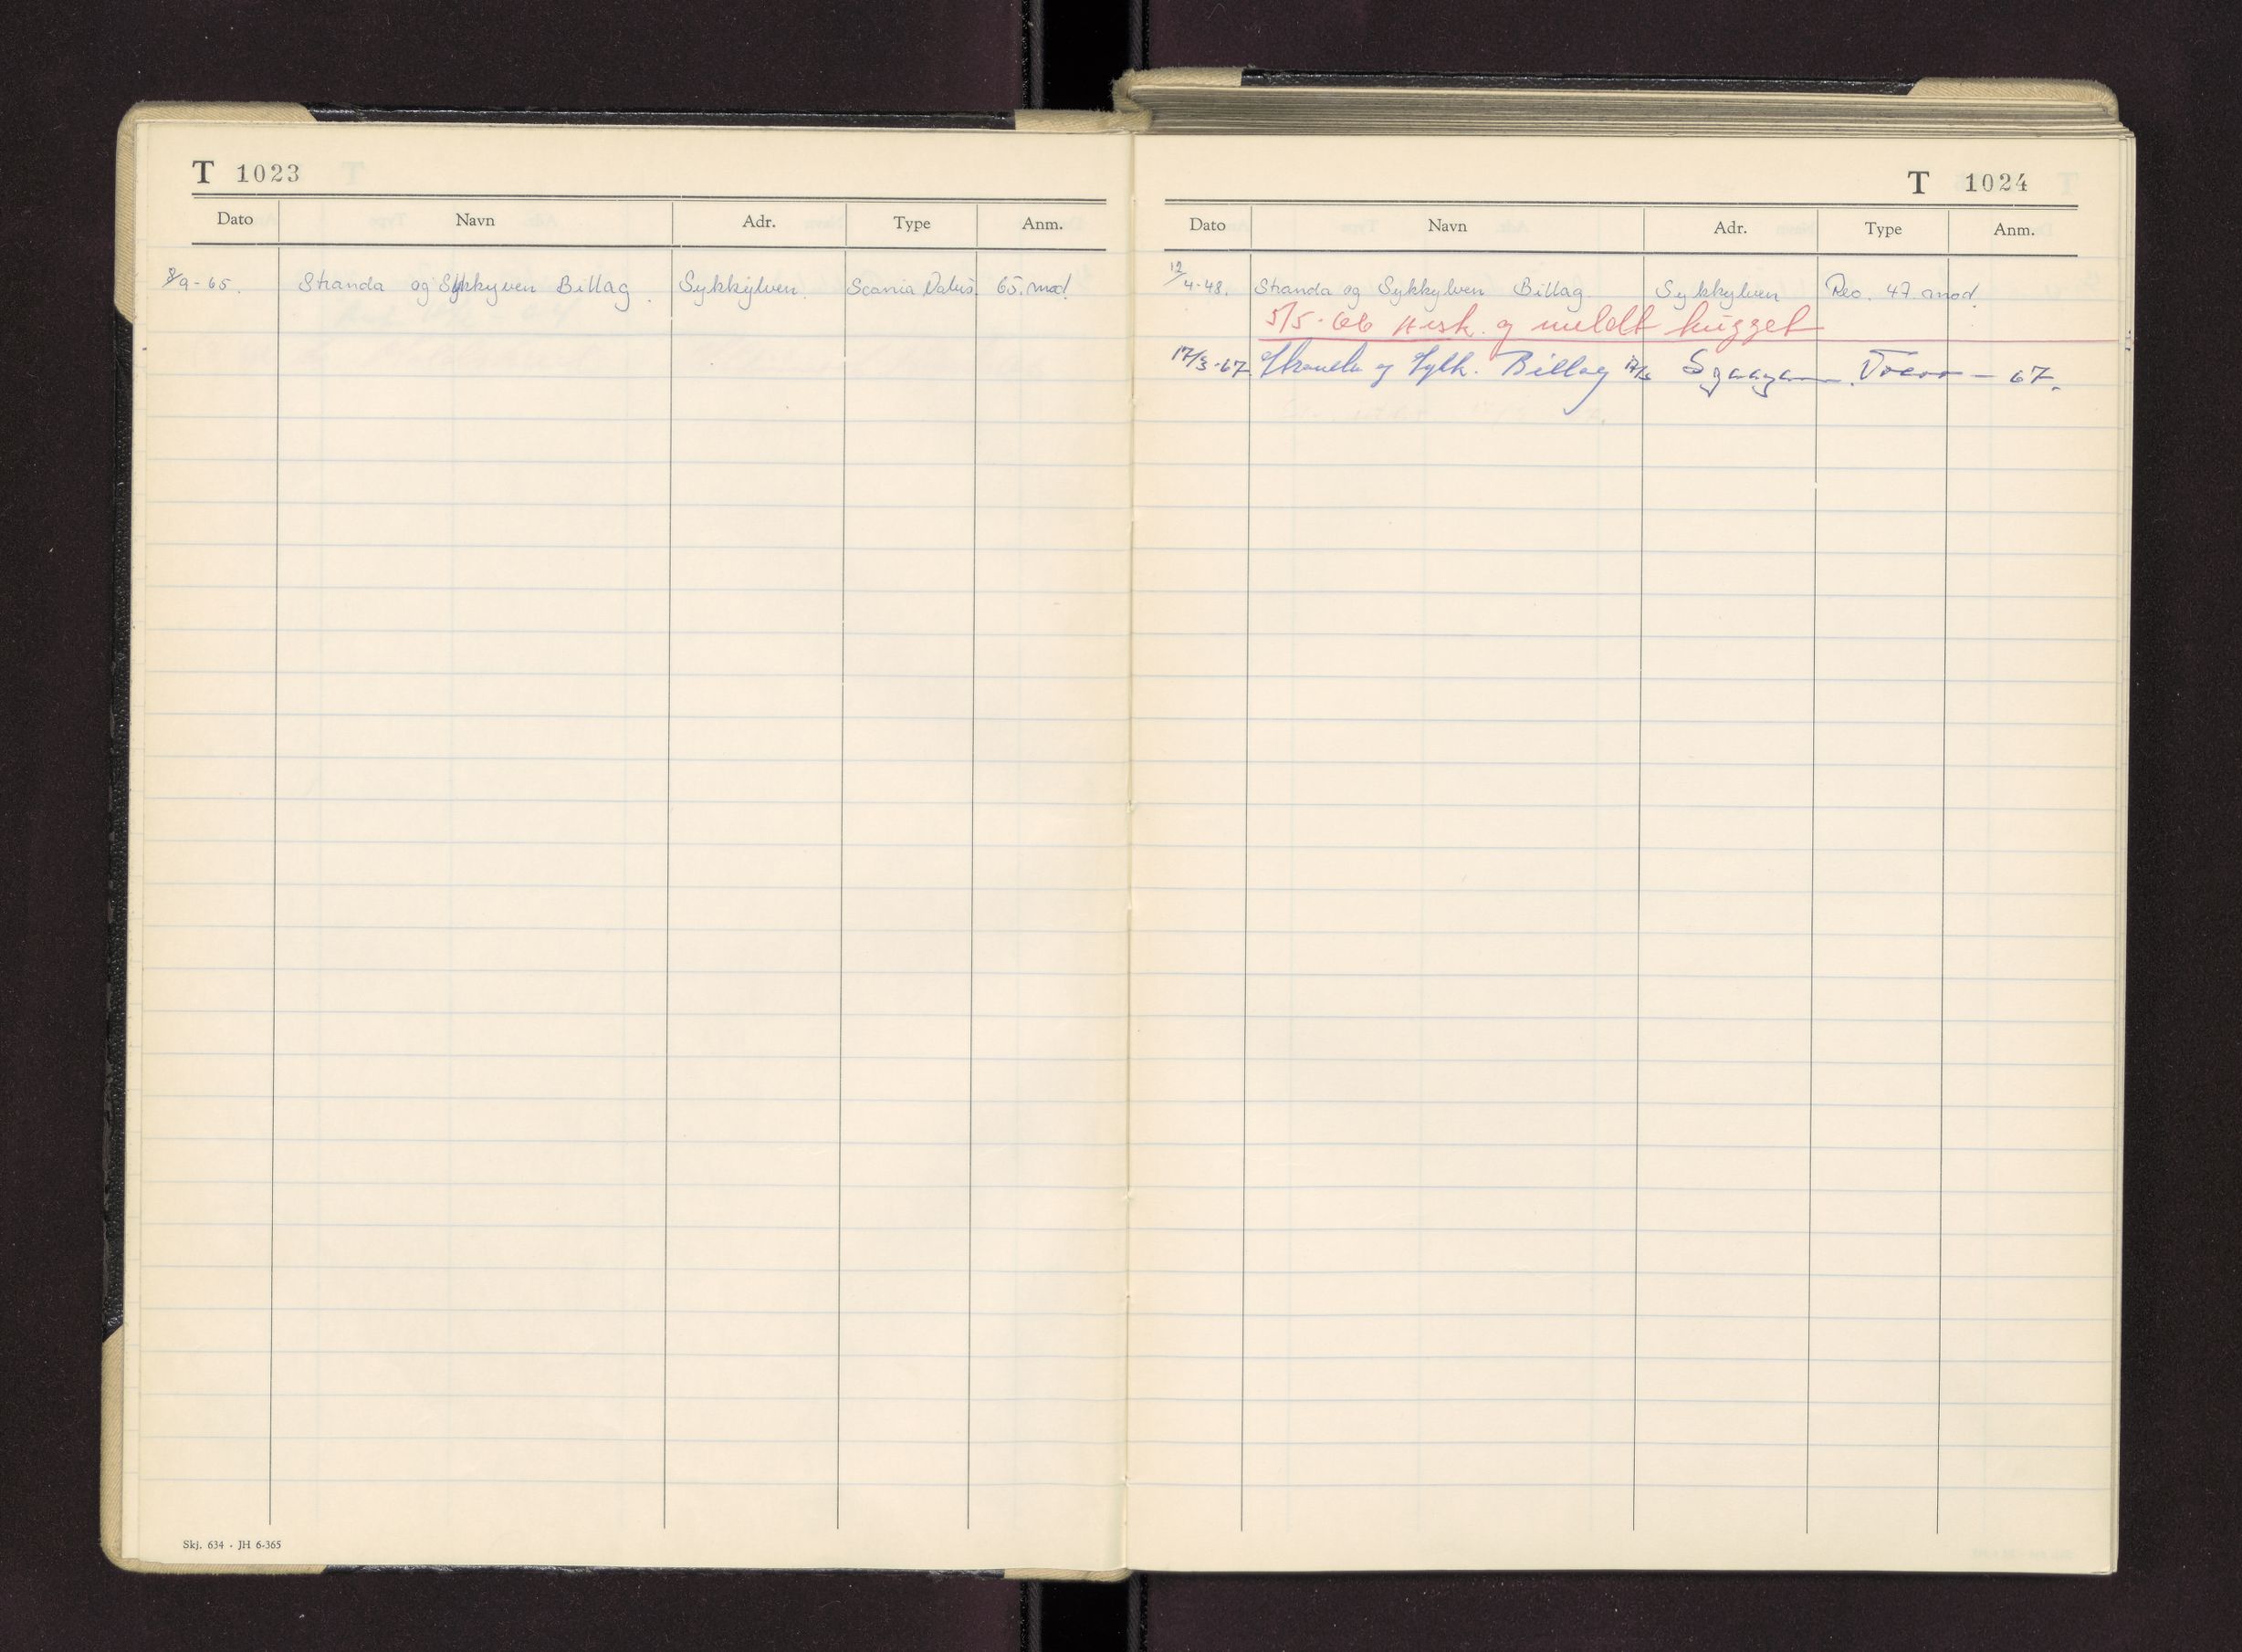 T 1023
Dato Navn Adr. Type Anm.
8/9-65. Stranda og Sykkyven Billag. Sykkylven. Scania Vabis. 65. mod.
Skj. 634 - JH 6-365
T 1024
Dato Navn Adr. Type Anm.
12/4-48. Stranda og Sykkylven Billag Sykkylven Reo. 47. mod.
5/5-66 og meldt hugget
17/3-67. Stranda og Sykk. Billag Volvo - 67.